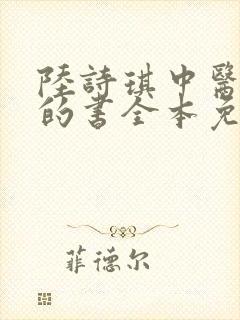 陸詩琪中醫
的書全本免
菲德尔